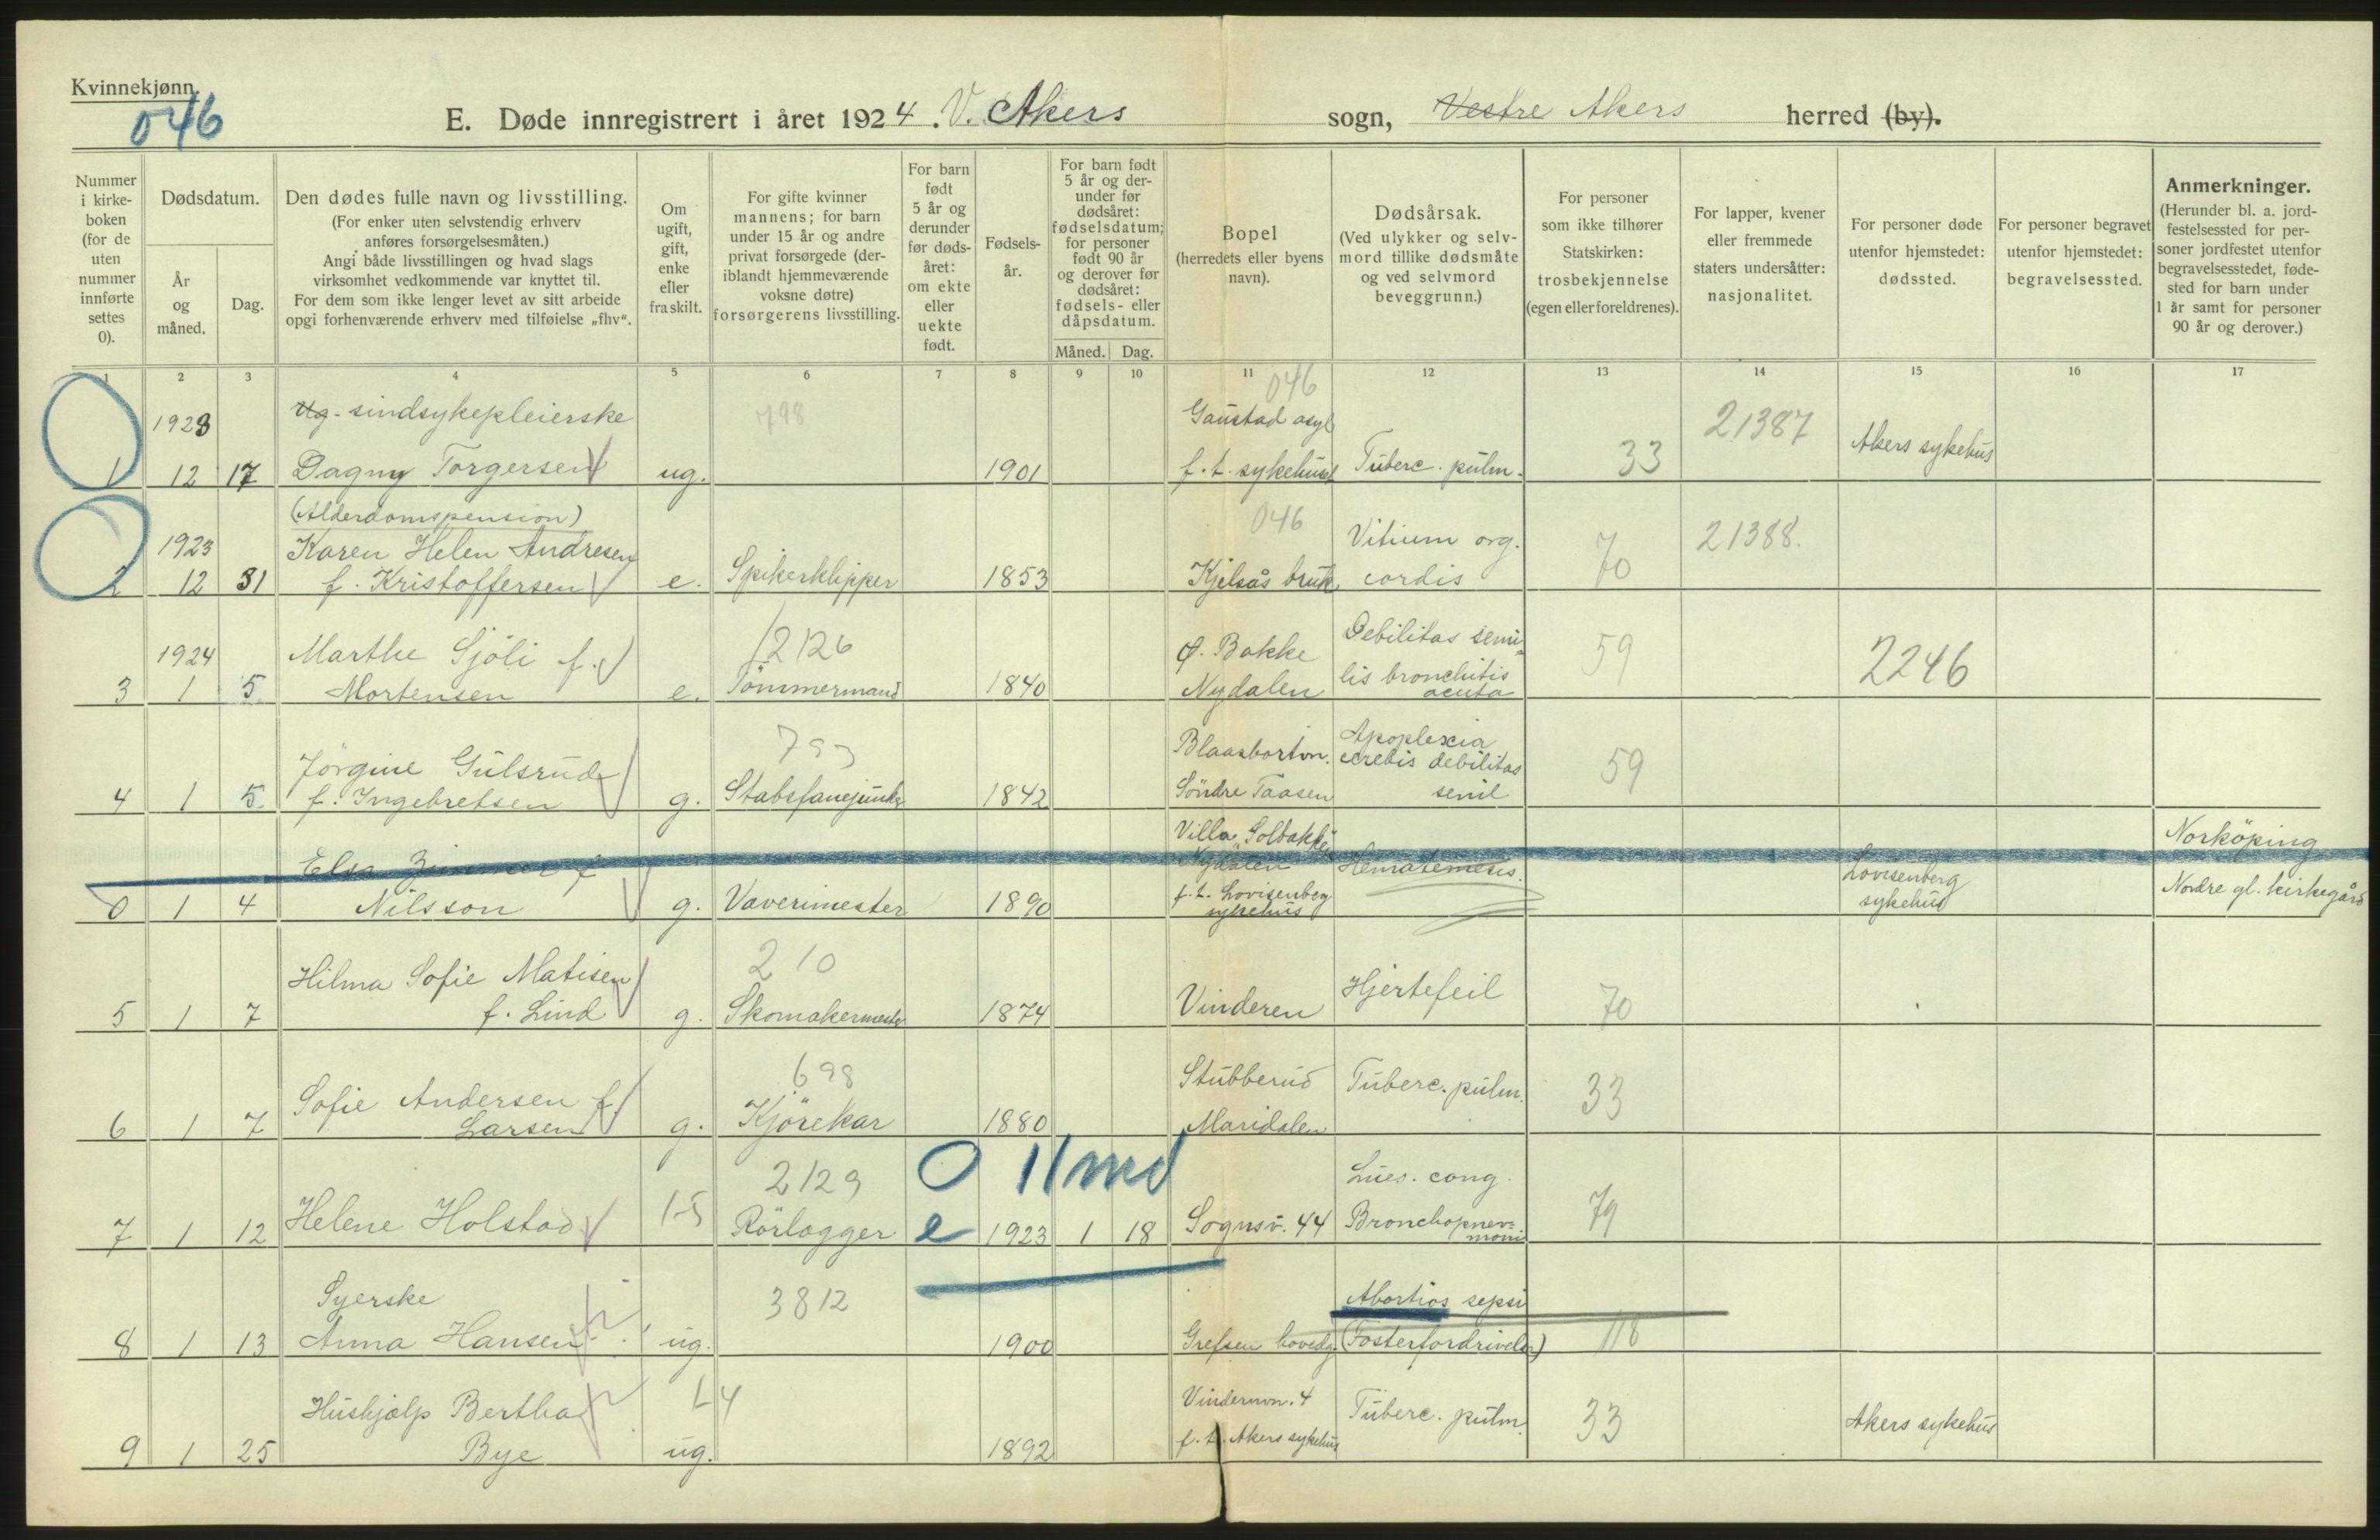 Kvinnekjønn.
046
E. Døde innregistrert i året 1924. V. Akers sogn, Vestre Akers herred (by).
Nummer i kirkeboken (for de uten nummer innførte settes 0).
Dødsdatum.
År og måned.
Dag.
Den dødes fulle navn og livsstilling.
(For enker uten selvstendig erhverv anføres forsørgelsesmåten.)
Angi både livsstillingen og hvad slags virksomhet vedkommende var knyttet til.
For dem som ikke lenger levet av sitt arbeide opgi forhenværende erhverv med tilføielse „fhv“.
Om ugift, gift, enke eller fraskilt.
For gifte kvinner mannens; for barn under 15 år og andre privat forsørgede (deriblandt hjemmeværende voksne døtre) forsørgerens livsstilling.
For barn født 5 år og derunder før dødsåret: om ekte eller uekte født.
Fødselsår.
For barn født 5 år og derunder før dødsåret: fødselsdatum; for personer født 90 år og derover før dødsåret: fødsels- eller dåpsdatum.
Måned. Dag.
Bopel (herredets eller byens navn).
Dødsårsak.
(Ved ulykker og selvmord tillike dødsmåte og ved selvmord beveggrunn.)
For personer som ikke tilhører Statskirken: trosbekjennelse (egen eller foreldrenes).
For lapper, kvener eller fremmede staters undersåtter: nasjonalitet.
For personer døde utenfor hjemstedet: dødssted.
For personer begravet utenfor hjemstedet: begravelsessted.
Anmerkninger.
(Herunder bl. a. jordfestelsessted for personer jordfestet utenfor begravelsesstedet, fødested for barn under 1 år samt for personer 90 år og derover.)
1 2 3 4 5 6 7 8 9 10 11 12 13 14 15 16 17
Ug. sindsykepleierske 798 046
1923 Gaustad asyl 21387 Akers sykehus
1 12 17 Dagny Torgersen ug. 1901 f.t. sykehuset Tuberc. pulm. 33
(Alderdomspension) 046
1923 Karen Helen Andresen Vitium org. 21388.
2 12 31 f. Kristoffersen e. Spikerklipper 1853 Kjelsås bruk cordis 70
1924 Marthe Sjöli f. 2126 Ø. Bakke Debilitas seni- 59 2246
3 1 5 Mortensen e. Tömmermand 1840 Nydalen lis bronchitis acuta
Jörgine Gulsrud 793 Blaasbortvn. Apoplexia cerebis debilitas 59
4 1 5 f. Ingebretsen g. Stabsfanejunker 1842 Söndre Taasen senil
Elsa Zimmer f. Villa „Solbakken“ Norköping
Nydalen Hematemesis. Lovisenberg
0 1 4 Nilsson g. Vaverimester 1890 f.t. Lovisenberg sykehus sykehus Nordre gl. kirkegård
Hilma Sofie Matisen 210 Hjertefeil
5 1 7 f. Lind g. Skomakermester 1874 Vinderen 70
Sofie Andersen f. 698 Stubberud Tuberc. pulm. 33
6 1 7 Larsen g. Kjörekar 1880 Maridalen
2129 0 11 md Lues. cong.
7 1 12 Helene Holstad 1-5 Rörlagger e 1923 1 18 Sognsv. 44 Bronchopnevmoni 79
Syerske 3812 Abortios sepsi
8 1 13 Anna Hansen ug. 1900 Grefsen hovedg. (Fosterfordrivelse) 118
Hushjælp Bertha L4 Vindernvn. 4 Tuberc. pulm. 33 Akers sykehus
9 1 25 Bye ug. 1892 f.t. Akers sykehus